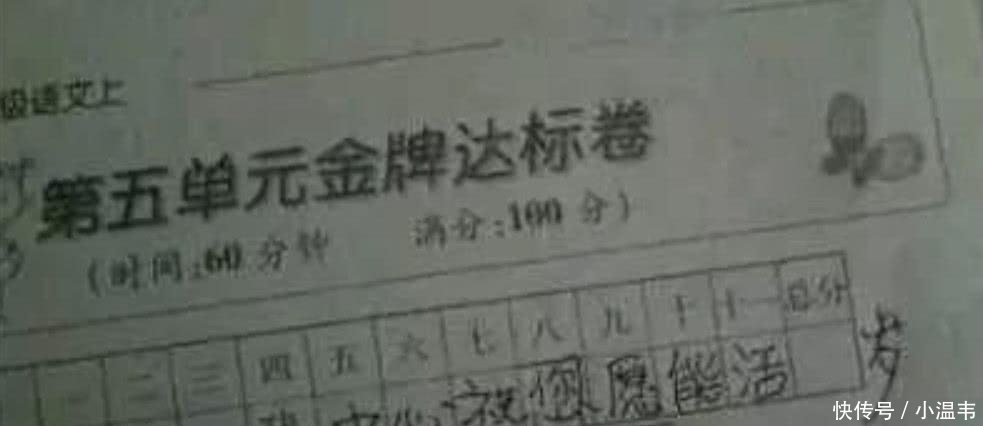 级语文上
第五单元金牌达标卷
(时间:60 分钟 满分:100 分)
一 二 三 四 五 六 七 八 九 十 十一 总分
心 祝 您 愿 能 活 岁
快传号 / 小温韦